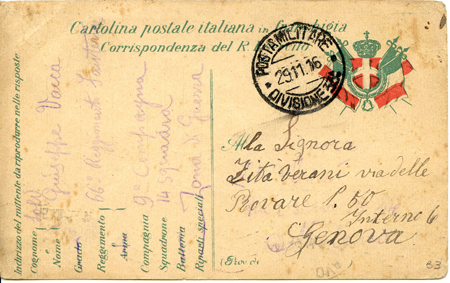 Cartolina postale italiana in franchigia
Corrispondenza del R. Esercito
POSTA MILITARE
29.11.16
DIVISIONE
Alla Signora
Zita Verani via delle
Rovare l. 50
Interno 6
Genova
Indirizzo del mittente da riprodurre nelle risposte
Cognome Vacca
Nome Giuseppe
Grado
Reggimento 66° Reggimento
Arma
Compagnia 9 Compagna
Squadrone 14 squadra
Batteria
Riparti speciali Zona Guerra
83